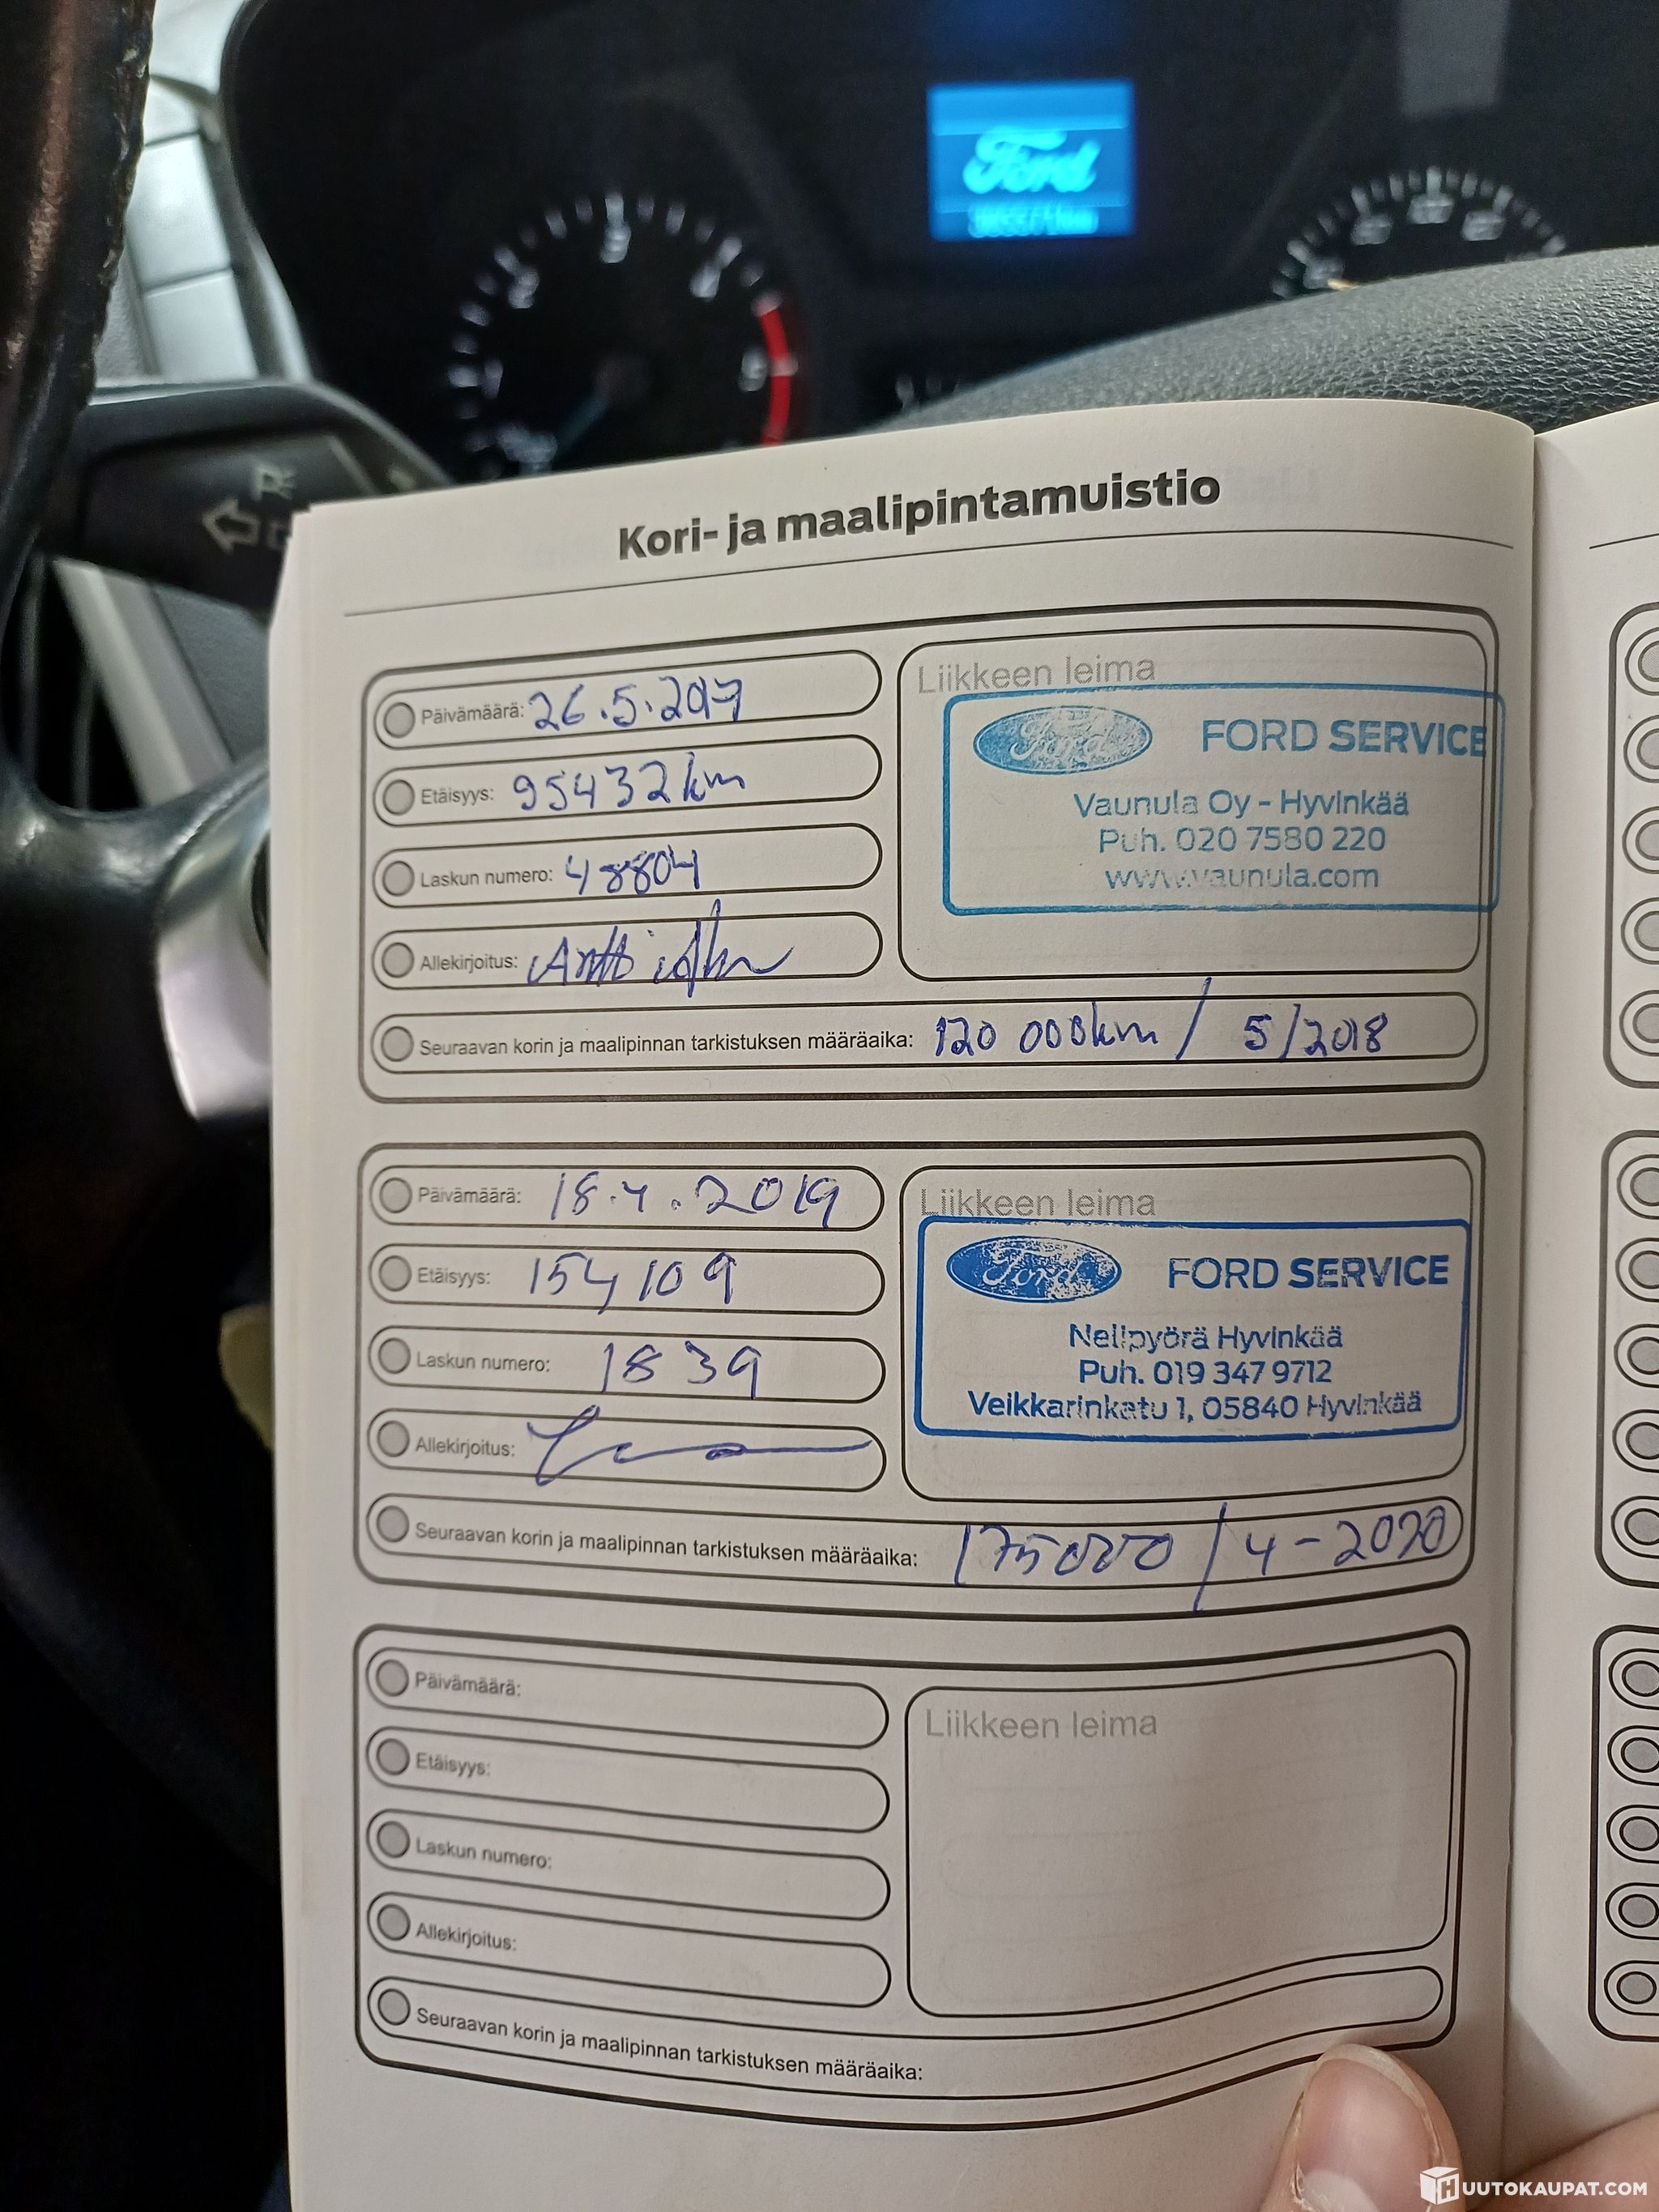 Ford
Kori- ja maalipintamuistio
Päivämäärä: 26.5.2017
Etäisyys: 95432 km
Laskun numero: 48804
Allekirjoitus: Antti
Seuraavan korin ja maalipinnan tarkistuksen määräaika: 120 000km / 5/2018
Liikkeen leima
Ford FORD SERVICE
Vaunula Oy - Hyvinkää
Puh. 020 7580 220
www.vaunula.com
Päivämäärä: 18.4.2019
Etäisyys: 154109
Laskun numero: 1839
Allekirjoitus:
Seuraavan korin ja maalipinnan tarkistuksen määräaika: 175000 / 4-2020
Liikkeen leima
Ford FORD SERVICE
Nelipyörä Hyvinkää
Puh. 019 347 9712
Veikkarinkatu 1, 05840 Hyvinkää
Päivämäärä:
Etäisyys:
Laskun numero:
Allekirjoitus:
Seuraavan korin ja maalipinnan tarkistuksen määräaika:
Liikkeen leima
HUUTOKAUPAT.COM